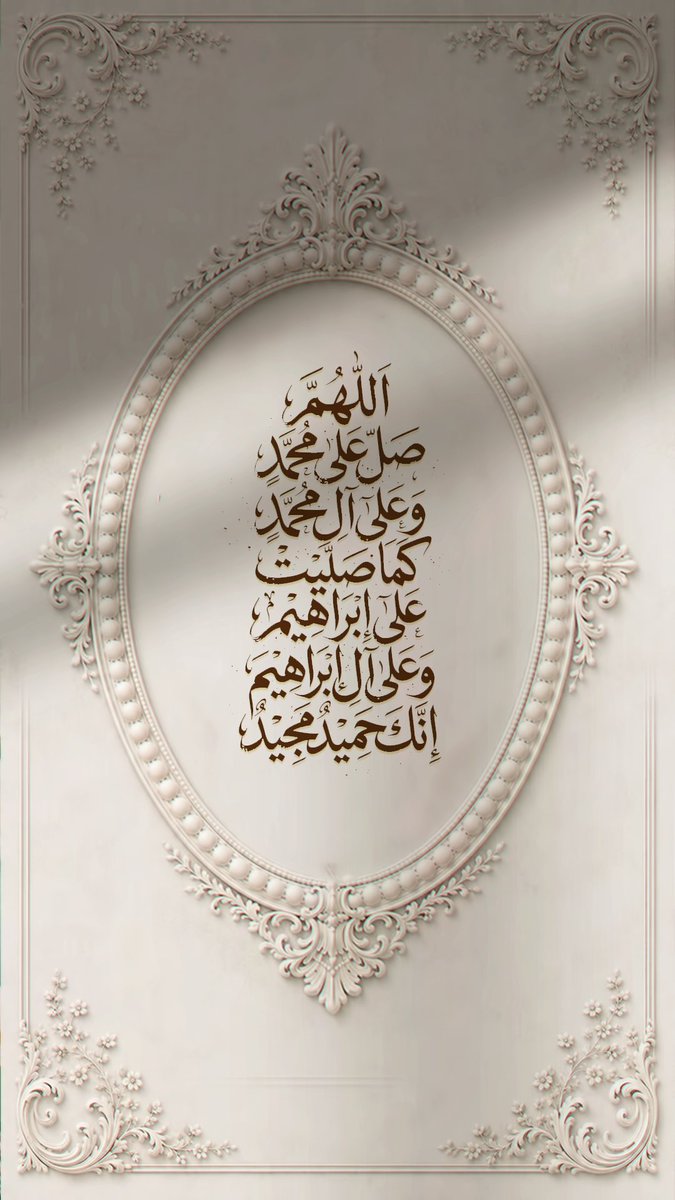 اَللّٰهُمَّ
صَلِّ عَلٰى مُحَمَّدٍ
وَعَلٰى آلِ مُحَمَّدٍ
كَمَا صَلَّيْتَ
عَلٰى إِبْرَاهِيْمَ
وَعَلٰى آلِ إِبْرَاهِيْمَ
إِنَّكَ حَمِيْدٌ مَجِيْدٌ